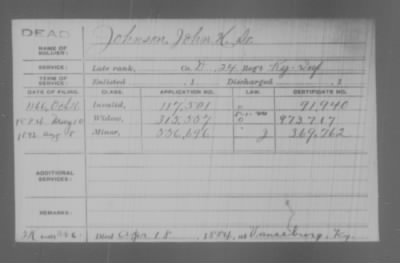 DEAD
NAME OF SOLDIER: Johnson, John K. Sr.
SERVICE: Late rank, Co. D, 24 Reg't Ky. Inf
TERM OF SERVICE: Enlisted , 1 Discharged , 1
DATE OF FILING. CLASS. APPLICATION NO. LAW. CERTIFICATE NO.
1866, Oct Invalid, 117,501 91,940
May 10 Widow, 315,557 973,717
1892 Aug 8 Minor, 556,646 2 369,762
ADDITIONAL SERVICES:
REMARKS:
Died Apr. 18, 1884, at Vanceburg, Ky.